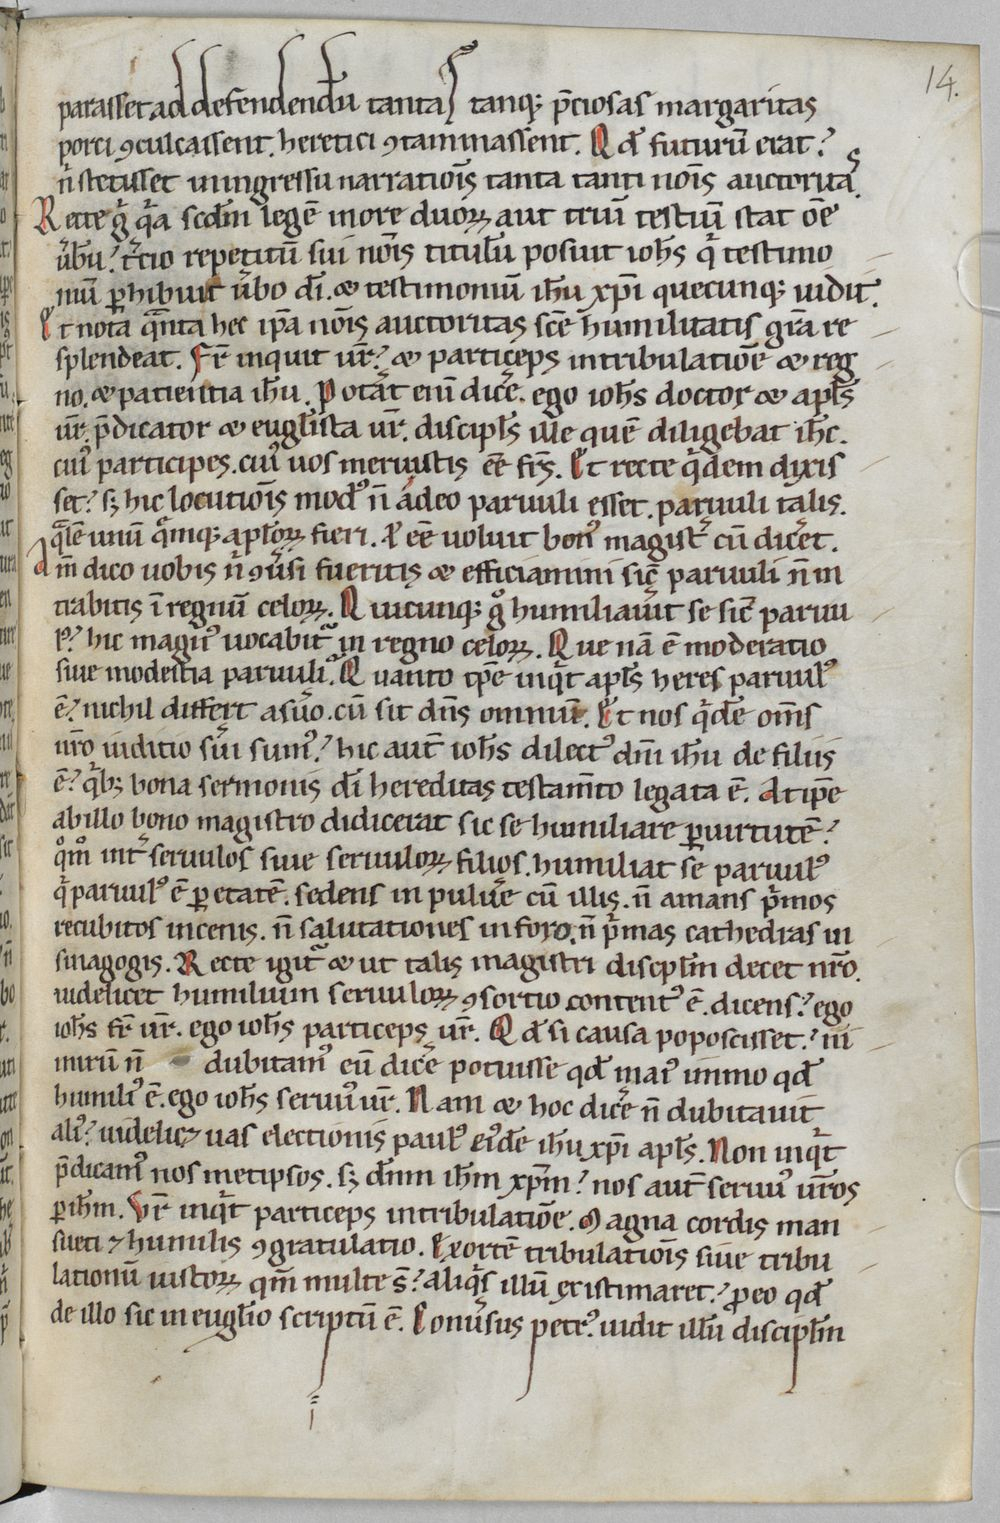 14.
parasset ad defendendū tanta tanq; p̄ciosas margaritas
porci ꝯculcassent. heretici ꝯtaminassent. Qđ futurū erat?
n̄ stetisset in ingressu narratiōis tanta tanti nōis auctoritas.
Recte gͥ qͥa scđm legē in ore duoꝝ aut triū testiū stat oē
ūbū? t̄cio repetitū sui nōis titulū posuit ioħs qͥ testimo
niū ꝑhibuit ūbo dī. & testimoniū iħu xp̄i quecunq; uidit.
Et nota qͣnta hec ip̄a nōis auctoritas sc̄e humilitatis gr̄a re
splendeat. Fr̄ inquit ur̄? & particeps in tribulatiōe & reg
no. & patientia iħu. Potāt eni dic̄e. ego ioħs doctor & apl̄s
ur̄. p̄dicator & euḡlista ur̄. discipl̄s ille quē diligebat iħc.
cuiꝰ participes. cuiꝰ uos meruistis eē fr̄s. Et recte qͥdem dixis
set? sꝫ hic locutiōis modꝰ n̄ adeo paruuli esset. paruuli talis.
qͣlē unū quēq; apl̄oꝝ fieri. l̄ eē uoluit bonꝰ magist̄ cū dic̄et.
Am̄ dico uobis nͥ ꝯūsi fueritis & efficiamini sic̄ paruuli n̄ in
trabitis ī regnū celoꝝ. Quicunq; gͦ humiliauit se sic̄ paruu
lꝰ? hic magnꝰ uocabit̄ in regno celoꝝ. Que nā ē moderatio
siue modestia paruuli? Quanto tp̄e inqͥt apl̄s heres paruulꝰ
ē? nichil differt a suo. cū sit dn̄s omniū. Et nos qͥdē om̄s
nr̄o iuditio sūi sumꝰ? hic aut̄ ioħs dilectꝰ dn̄i iħu de filiis
ē? qͥbꝫ bona sermonis dī hereditas testam̄to legata ē. At ip̄e
ab illo bono magistro didicerat sic se humiliare ꝑ uirtutē?
qͦm̄ int̄ seruulos siue seruuloꝝ filios. humiliat se paruulꝰ
qͥ paruulꝰ ē ꝑ etatē. sedens in puluē cū illis. n̄ amans pͥmos
recubitos in cenis. n̄ salutationes in foro. n̄ pͥmas cathedras in
sinagogis. Recte igit̄ & ut talis magistri discipl̄m decet nr̄o.
uidelicet humilium seruuloꝝ ꝯsortio contentꝰ ē. dicens? ego
ioħs fr̄ ur̄. ego ioħs particeps ur̄. Qđ si causa poposcisset? ni
mirū n̄ dubitamꝰ eū dic̄e potuisse qđ maiꝰ immo qđ
humiliꝰ ē. ego ioħs seruꝰ ur̄. Nam & hoc dic̄e n̄ dubitauit
aliꝰ? uidelicꝫ uas electionis paulꝰ eiꝰdē iħu xp̄i apl̄s. Non inqͥt
p̄dicamꝰ nos metipsos. sꝫ dn̄m iħm xp̄m? nos aut̄ seruuꝰ ur̄os
ꝑ iħm. Ur̄ inqͥt particeps in tribulatiōe. Magna cordis man
sueti ⁊ humilis ꝯgratulatio. Exortē tribulatiōis siue tribu
lationū iustoꝝ qm̄ multe s̄? aliqͥs illū existimaret? ꝓ eo qđ
de illo sic in euḡlio scriptū ē. Conūsus petrꝰ. uidit illū discipl̄m